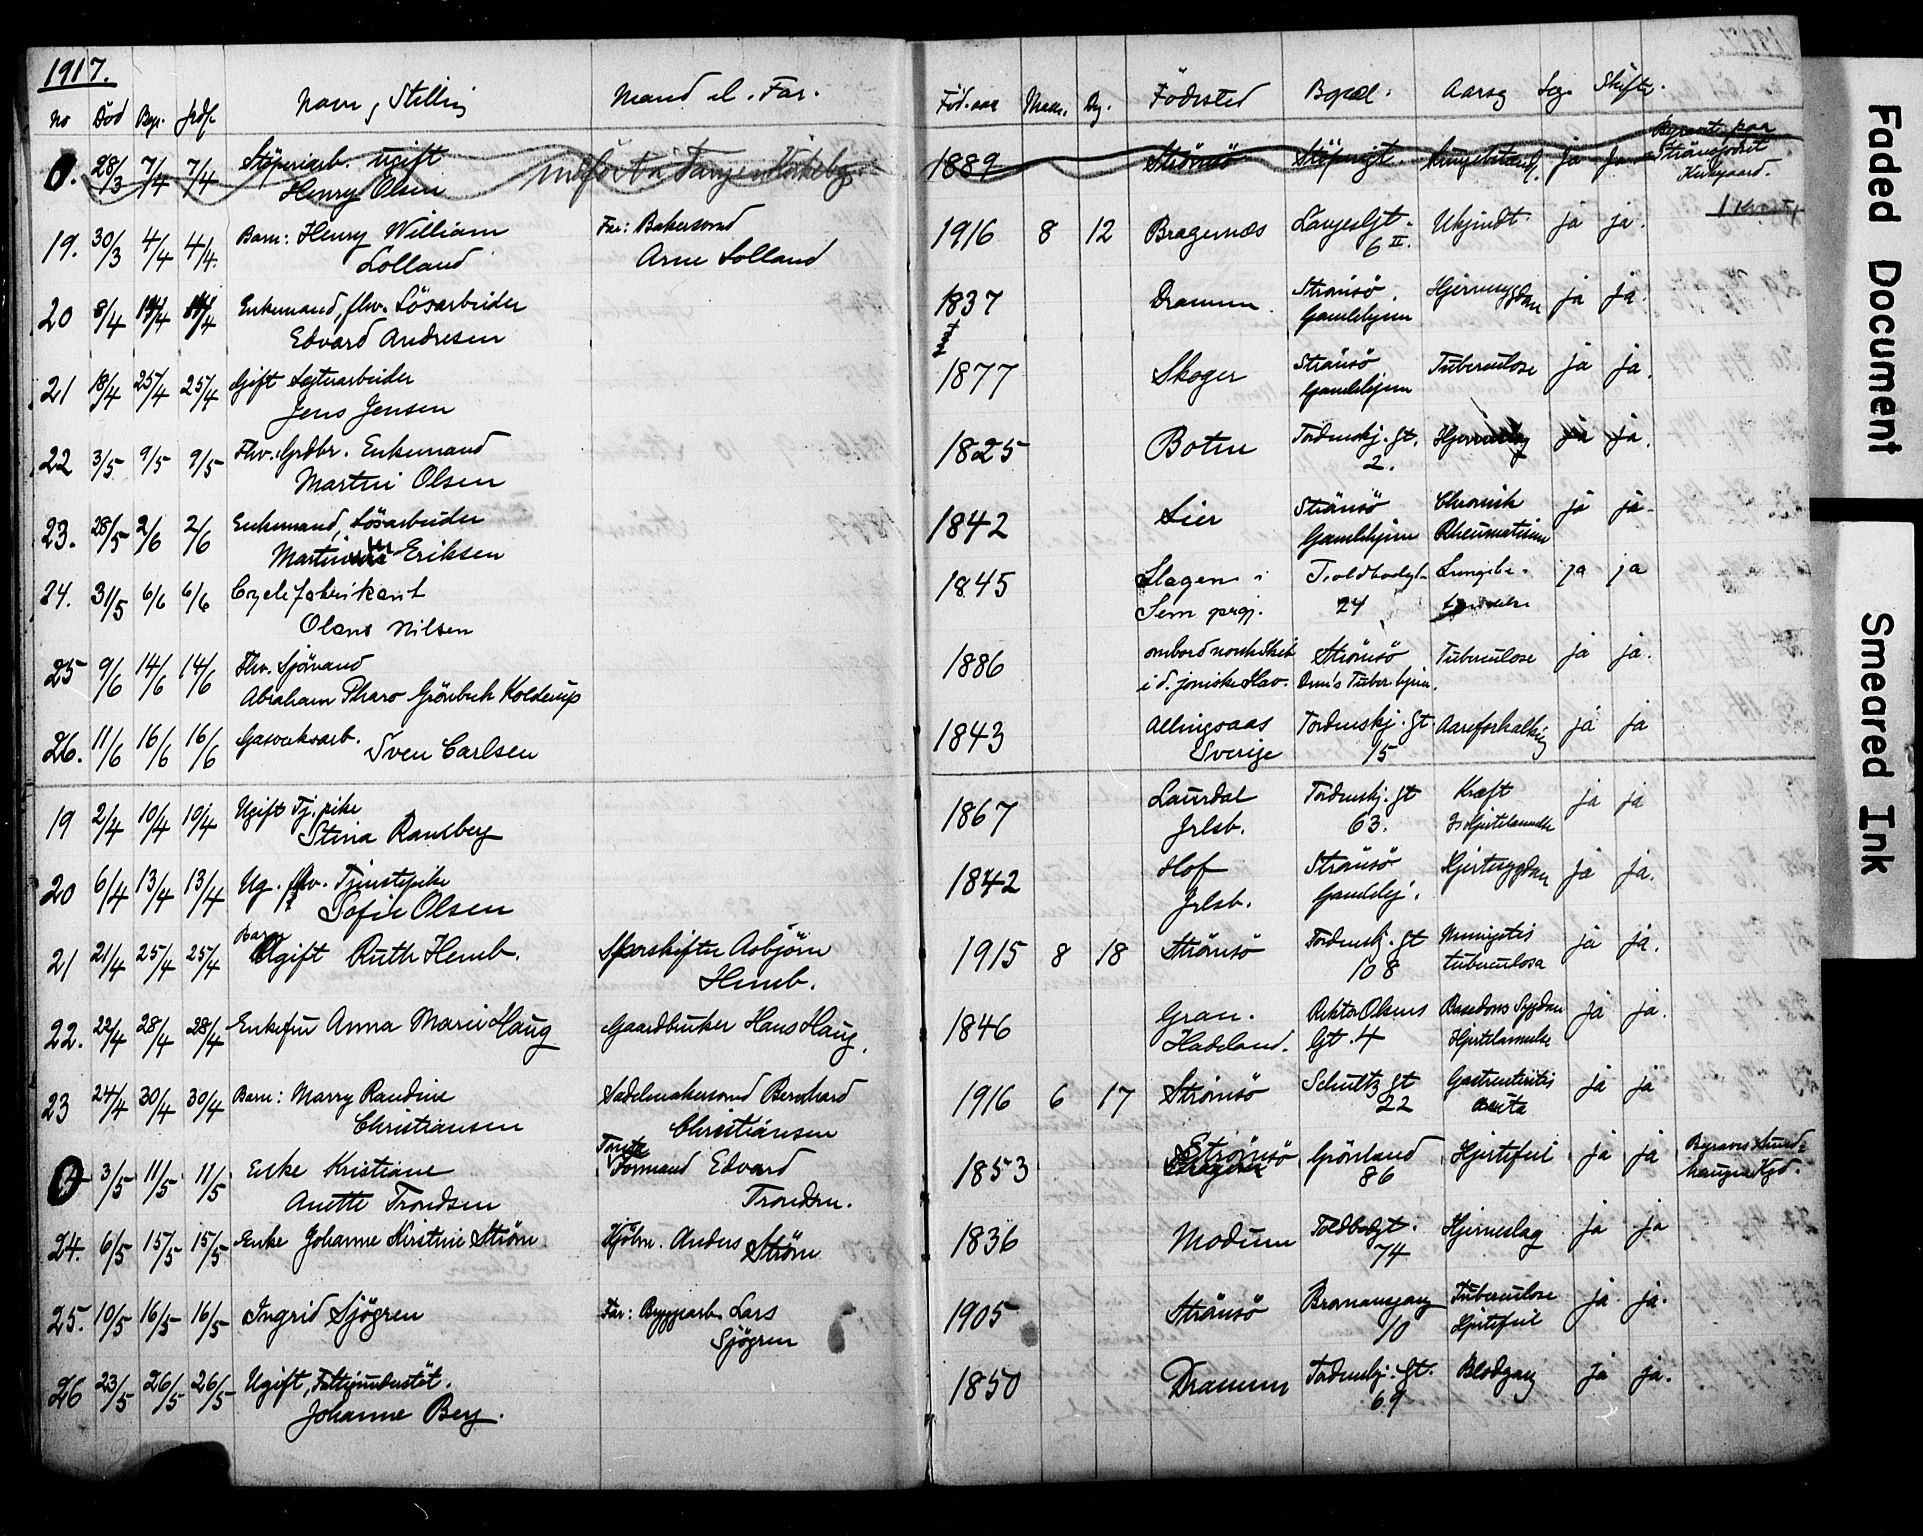 1917.
No Död Begr. Jrdf. Navn, Stilling Mand el. Far. Föd. aar Maan. Dg. Födested Bopæl. Aarsag Læge Skifte.
0. 28/3 7/4 7/4 Stöperiarb. ugift 1889 Strömsö Stöperigt. ja ja Begravet paa
Henry Olsen Strömsgodset
Kirkegaard.
19. 30/3 4/4 4/4. Barn: Henry William Far: Bakersvend 1916 8 12 Bragernæs Langesgt. Ukjendt ja ja.
Lolland Arne Lolland 6 II.
20 8/4 14/4 14/4 Enkemand, fhv. Lösarbeider 1837 Drammen Strömsö Hjernesygdom ja ja.
Edvard Andresen Gamlehjem
21 18/4 25/4 25/4 Gift Sagtomtarbeider 1877 Skoger Strömsö Tuberculose ja ja.
Jens Jensen Gamlehjem
22 3/5 9/5 9/5 Fhv. Grdbr. Enkemand 1825 Botne Tordenskj. gt. Hjerneslag ja ja.
Martin Olsen 2.
23. 28/5 2/6 2/6 Enkemand, Lösarbeider 1842 Lier Strömsö Chronisk ja ja.
Martin Eriksen Gamlehjem Rheumatisme
24. 31/5 6/6 6/6 Cyclefabrikant 1845 Slagen i Toldbodgt. Lungebe- ja ja
Olans Nilsen Sem prgj. 24 tændelse
25 9/6 14/6 14/6 Fhv. Sjömand 1886 ombord norsk Skib Strömsö Tuberculose ja ja.
Abraham Pharo Grönbech Kolderup i d. joniske Hav. Dmn's Tuber.hjem.
26. 11/6 16/6 16/6 Gasverksarb. 1843 Allingsaas Tordenskj. gt. Aareforkalkning ja ja
Sven Carlsen Sverige 15
19 2/4 10/4 10/4 Ugift Tj. pike 1867 Laurdal Tordenskj. gt Kræft ja ja
Stina Ramberg Jrlsb. 63. Hjertelammelse
20 6/4 13/4 13/4 Ug. fhv. Tjenestepike 1842 Hof Strömsö Hjertesygdom ja ja.
Sofie Olsen Jrlsb. Gamlehj.
Barn
21 21/4 25/4 25/4 Ugift Ruth Hemb. Sporskifter Asbjörn 1915 8 18 Strömsö Tordenskj. gt Meningitis ja ja.
Hemb. 108 tuberculosa
22. 22/4 28/4 28/4 Enkefru Anna Marie Haug Gaardbruker Hans Haug. 1846 Gran. Rektor Olsens Basedows Sygdom ja ja.
Hadeland. Gt. 4 Hjertelammelse
23 24/4 30/4 30/4 Barn: Marry Randine Sadelmakersvend Bernhard 1916 6 17 Strömsö Schultz gt Gastroenteritis ja ja
Christiansen Christiansen 22 acuta
0 3/5 11/5 11/5 Enke Kristiane Formand Edvard 1853 Strömsö Grönland Hjertefeil ja ja Begraves Strand-
Anette Trondsen Trondsen. 86 haugen Kgd.
24. 6/5 15/5 15/5 Enke Johanne Kirstine Ström Kjöbm. Anders Ström 1836 Modum Toldbodgt. Hjerneslag ja ja
74
25. 10/5 16/5 16/5 Ingrid Sjögren Far: Byggearb. Lars 1905 Strömsö Bromansgang Tuberculose ja ja.
Sjögren 10 Hjertefeil
26 23/5 26/5 26/5 Ugift, Fattigunderstöt. 1850 Drammen Tordenskj. Gt. Blodgang ja ja.
Johanne Berg. 69
Faded Document
Smeared Ink